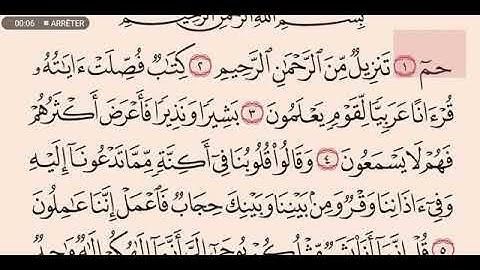 00:06 ■ ARRÊTER
بِسْمِ اللَّهِ الرَّحْمَٰنِ الرَّحِيمِ
حمٓ ١ تَنزِيلٌ مِّنَ ٱلرَّحْمَٰنِ ٱلرَّحِيمِ ٢ كِتَٰبٌ فُصِّلَتْ ءَايَٰتُهُۥ
قُرْءَانًا عَرَبِيًّا لِّقَوْمٍ يَعْلَمُونَ ٣ بَشِيرًا وَنَذِيرًا فَأَعْرَضَ أَكْثَرُهُمْ
فَهُمْ لَا يَسْمَعُونَ ٤ وَقَالُوا۟ قُلُوبُنَا فِىٓ أَكِنَّةٍ مِّمَّا تَدْعُونَآ إِلَيْهِ
وَفِىٓ ءَاذَانِنَا وَقْرٌ وَمِنۢ بَيْنِنَا وَبَيْنِكَ حِجَابٌ فَٱعْمَلْ إِنَّنَا عَٰمِلُونَ
٥ قُلْ إِنَّمَآ أَنَا۠ بَشَرٌ مِّثْلُكُمْ يُوحَىٰٓ إِلَىَّ أَنَّمَآ إِلَٰهُكُمْ إِلَٰهٌ وَٰحِدٌ